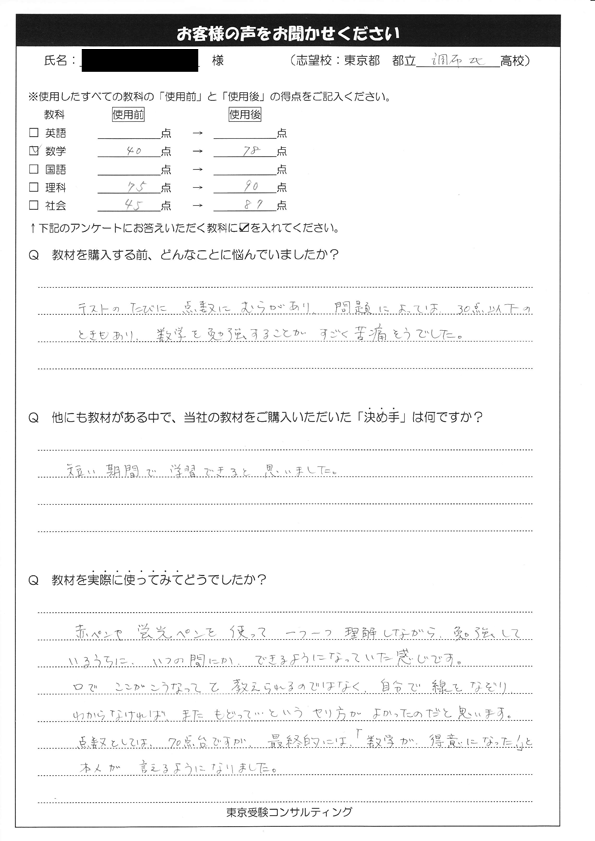 お客様の声をお聞かせください
氏名： 様 （志望校：東京都 都立 調布北 高校）
※使用したすべての教科の「使用前」と「使用後」の得点をご記入ください。
教科 使用前 使用後
□ 英語 点 → 点
☑ 数学 40 点 → 78 点
□ 国語 点 → 点
□ 理科 75 点 → 90 点
□ 社会 45 点 → 87 点
↑下記のアンケートにお答えいただく教科に☑を入れてください。
Q 教材を購入する前、どんなことに悩んでいましたか？
テストのたびに 点数に むらがあり、問題によっては 30点以下の
ときもあり、数学を勉強することが すごく苦痛そうでした。
Q 他にも教材がある中で、当社の教材をご購入いただいた「決め手」は何ですか？
短い期間で学習できると思いました。
Q 教材を実際に使ってみてどうでしたか？
赤ペンや 蛍光ペンを 使って 一つ一つ 理解しながら、勉強して
いるうちに、いつの間にか、できるようになっていた感じです。
口で ここがこうなって と 教えられるのではなく、自分で 線を なぞり
わからなければ、また もどって…という やり方が よかったのだと思います。
点数としては、70点台ですが、最終的には、「数学が、得意になった!」と
本人が 言えるようになりました。
東京受験コンサルティング